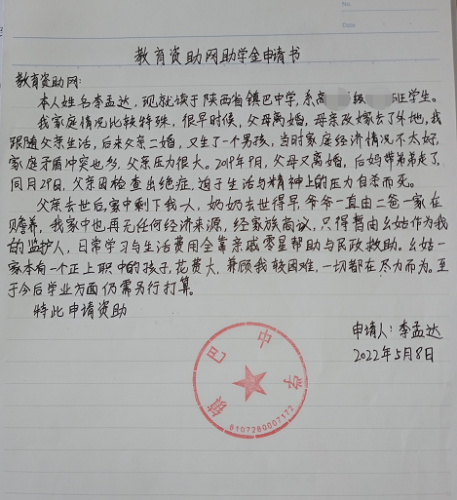 No.
Date
教育资助网助学金申请书
教育资助网:
本人姓名李孟达，现就读于陕西省镇巴中学，系高 级 班学生。
我家庭情况比较特殊，很早时候，父母离婚，母亲改嫁去了外地，我
跟随父亲生活，后来父亲二婚，又生了一个男孩，当时家庭经济情况不太好，
家庭矛盾冲突也多，父亲压力很大。2019年9月，父母又离婚，后妈带弟弟走了，
同月29日，父亲因检查出绝症，迫于生活与精神上的压力自杀而死。
父亲去世后，家中剩下我一人，奶奶去世得早，爷爷一直由二爸一家在
赡养，我家中也再无任何经济来源，经家族商议，只得暂由幺姑作为我
的监护人，日常学习与生活费用全靠亲戚零星帮助与民政救助。幺姑一
家本有一个正上职中的孩子，花费大，兼顾我较困难，一切都在尽力而为。至
于今后学业方面仍需另行打算。
特此申请资助
申请人：李孟达
2022年5月8日
镇巴中学
6107280007172